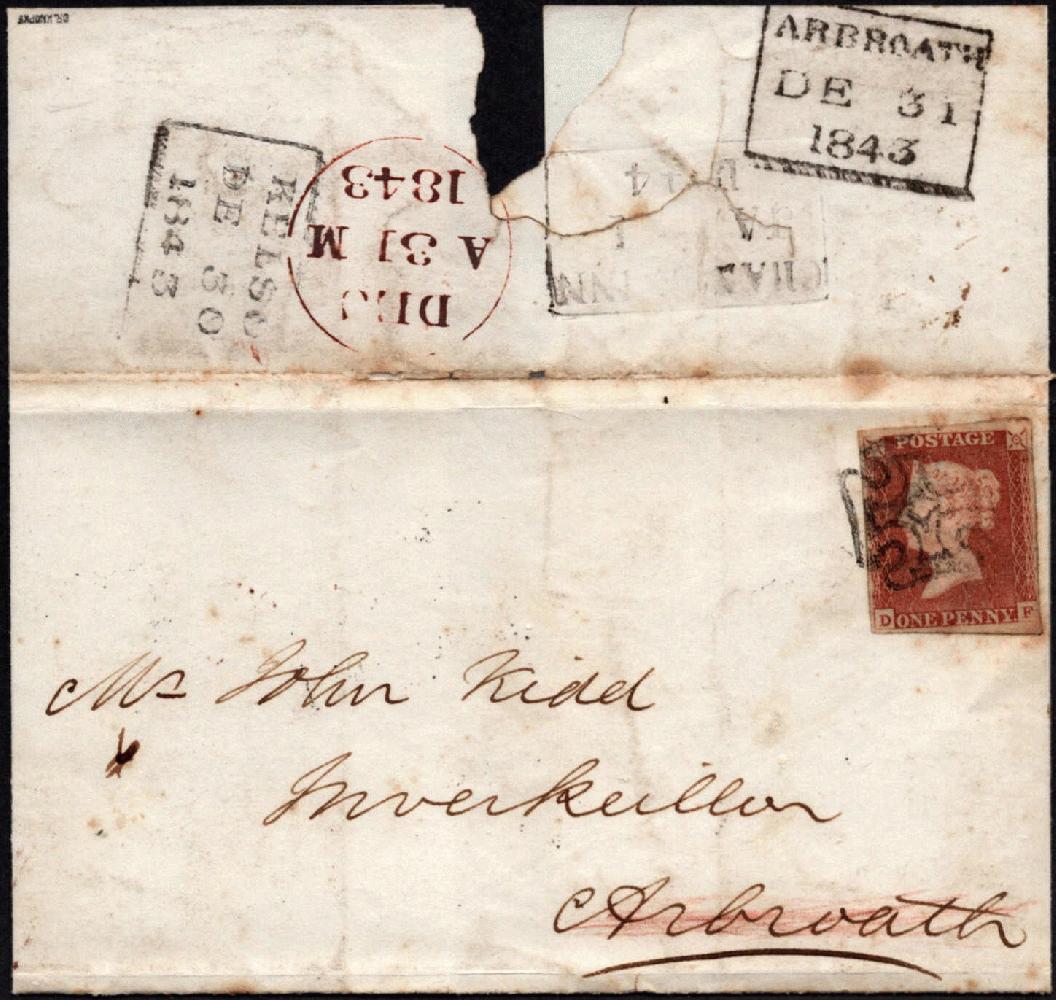 ARBROATH
DE 31
1843
KELSO
DE 30
1843
1843
A 31 M
DE
POSTAGE
D ONE PENNY F
Mr John Kidd
Inverkeillor
Arbroath